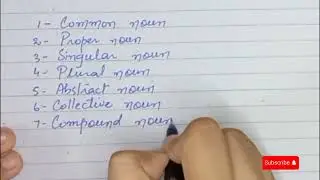 1- Common noun
2- Proper noun
3- Singular noun
4- Plural noun
5- Abstract noun
6- Collective noun
7- Compound noun
SUBSCRIBE